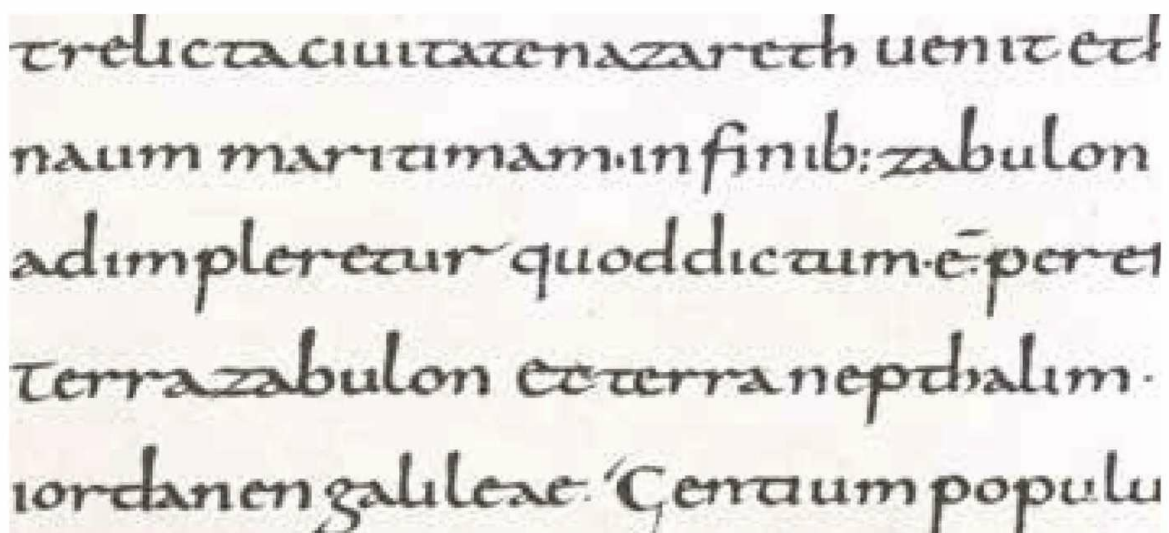 trelicta ciuitate nazareth uenit et h
naum maritimam· in finib: zabulon
adimpleretur quod dictum· ē· per e
Terra zabulon Et terra nepthalim ·
iordanen galileae· Gentium populu